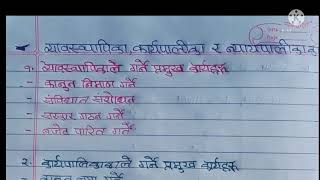 व्यावस्थापिका, कार्यपालिका र न्यायपालिकाव
१. व्यवस्थापिकाले गर्ने प्रमुख कार्यहरू
- कानुन निमाण गर्ने
- संविधान संशोधन
- सरकार गठन गर्ने
- बजेट पारित गर्ने
२. कार्यपालिकाले गर्ने प्रमुख कार्यहरू